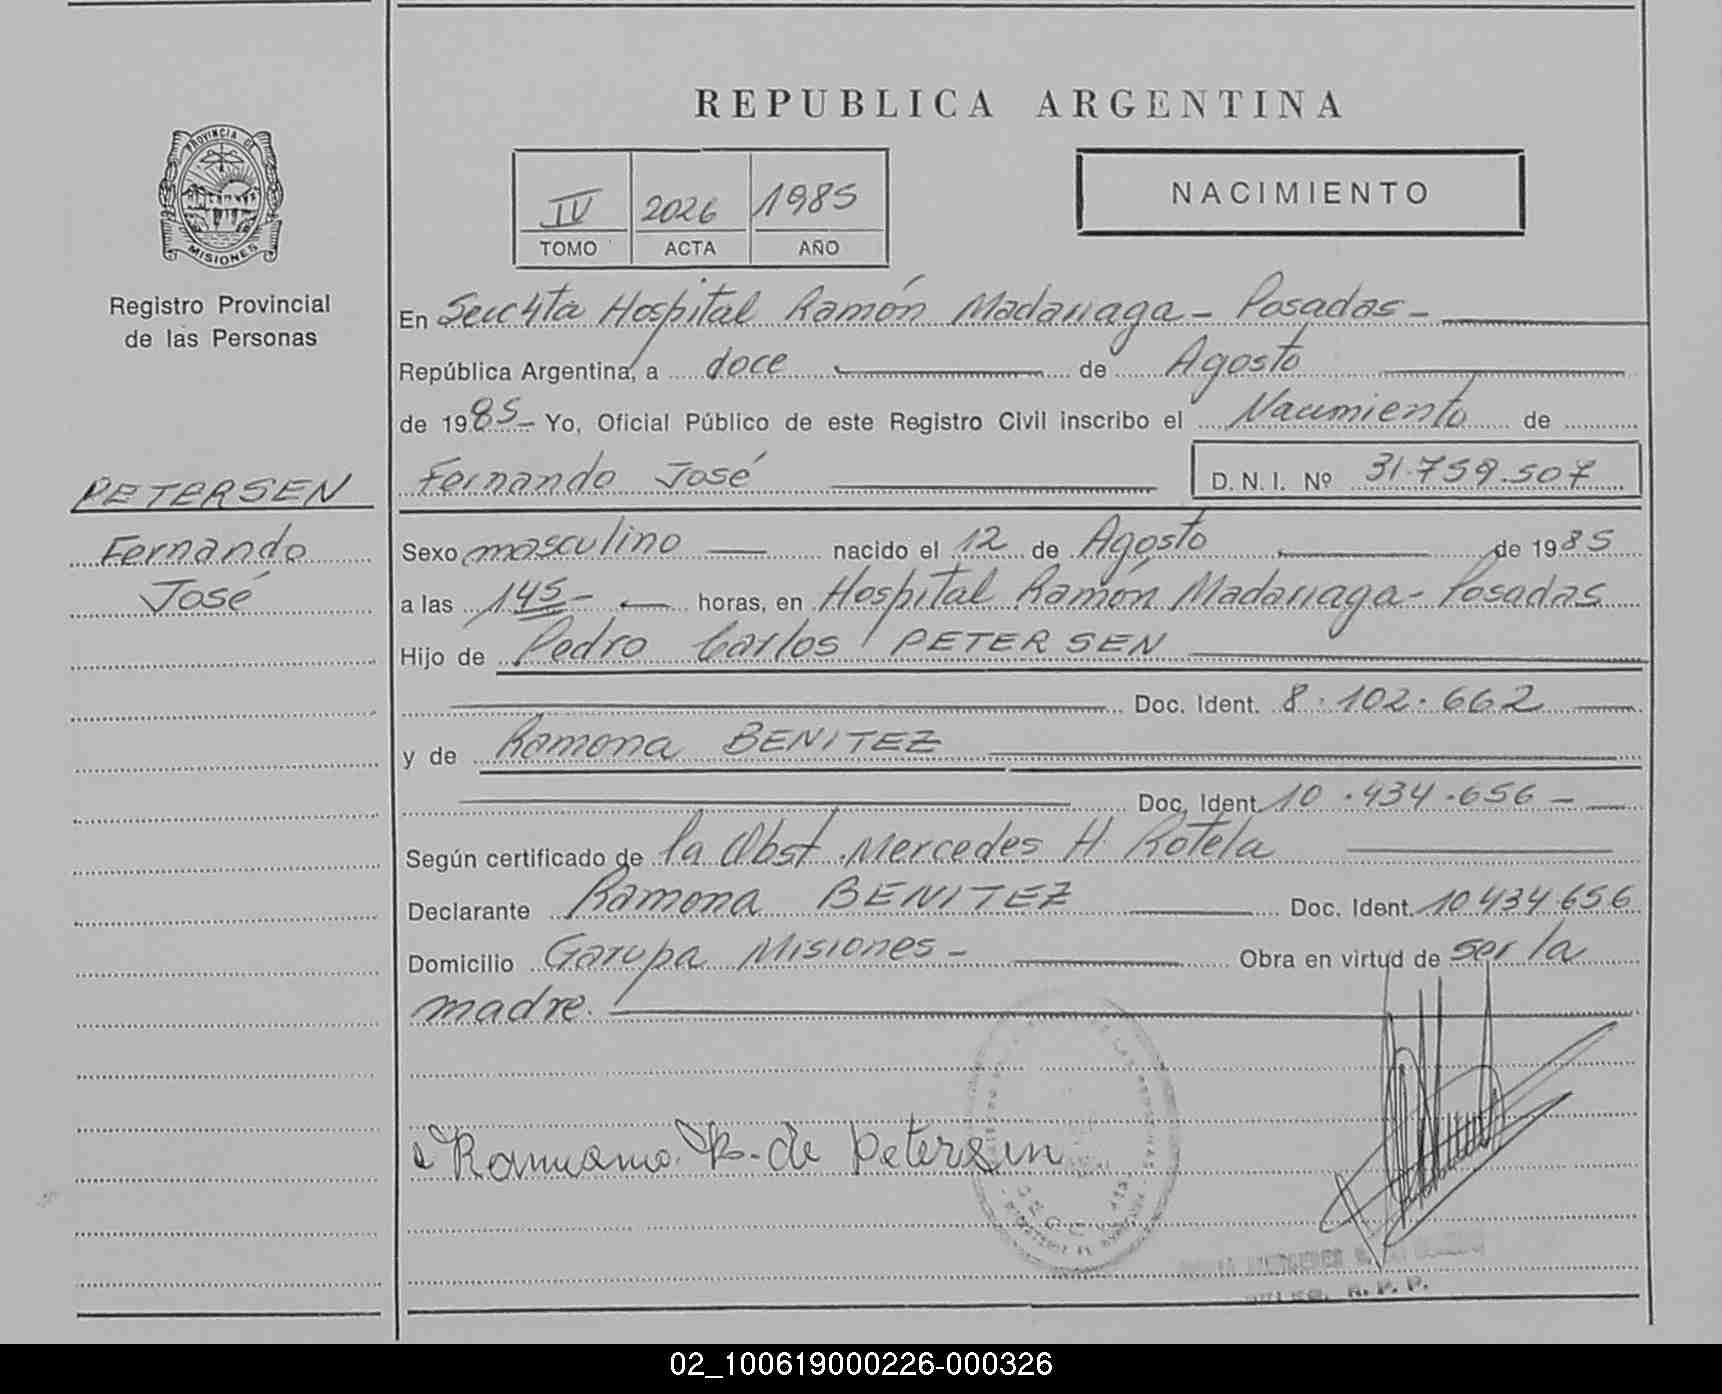 REPUBLICA ARGENTINA
PROVINCIA DE
MISIONES
Registro Provincial
de las Personas
IV 2026 1985
TOMO ACTA AÑO
NACIMIENTO
En Secc 4ta Hospital Ramón Madariaga - Posadas -
República Argentina, a doce de Agosto
de 1985- Yo, Oficial Público de este Registro Civil inscribo el Nacimiento de
Fernando José D.N.I. Nº 31.759.507
PETERSEN
Fernando
José
Sexo masculino nacido el 12 de Agosto de 1985
a las 145- horas, en Hospital Ramón Madariaga - Posadas
Hijo de Pedro Carlos PETERSEN
Doc. Ident. 8.102.662
y de Ramona BENITEZ
Doc. Ident. 10.434.656 -
Según certificado de la Obst. Mercedes H. Rotela
Declarante Ramona BENITEZ Doc. Ident. 10.434.656
Domicilio Garupa Misiones - Obra en virtud de ser la
madre.
B. de Petersen
R.P.P.
02_100619000226-000326